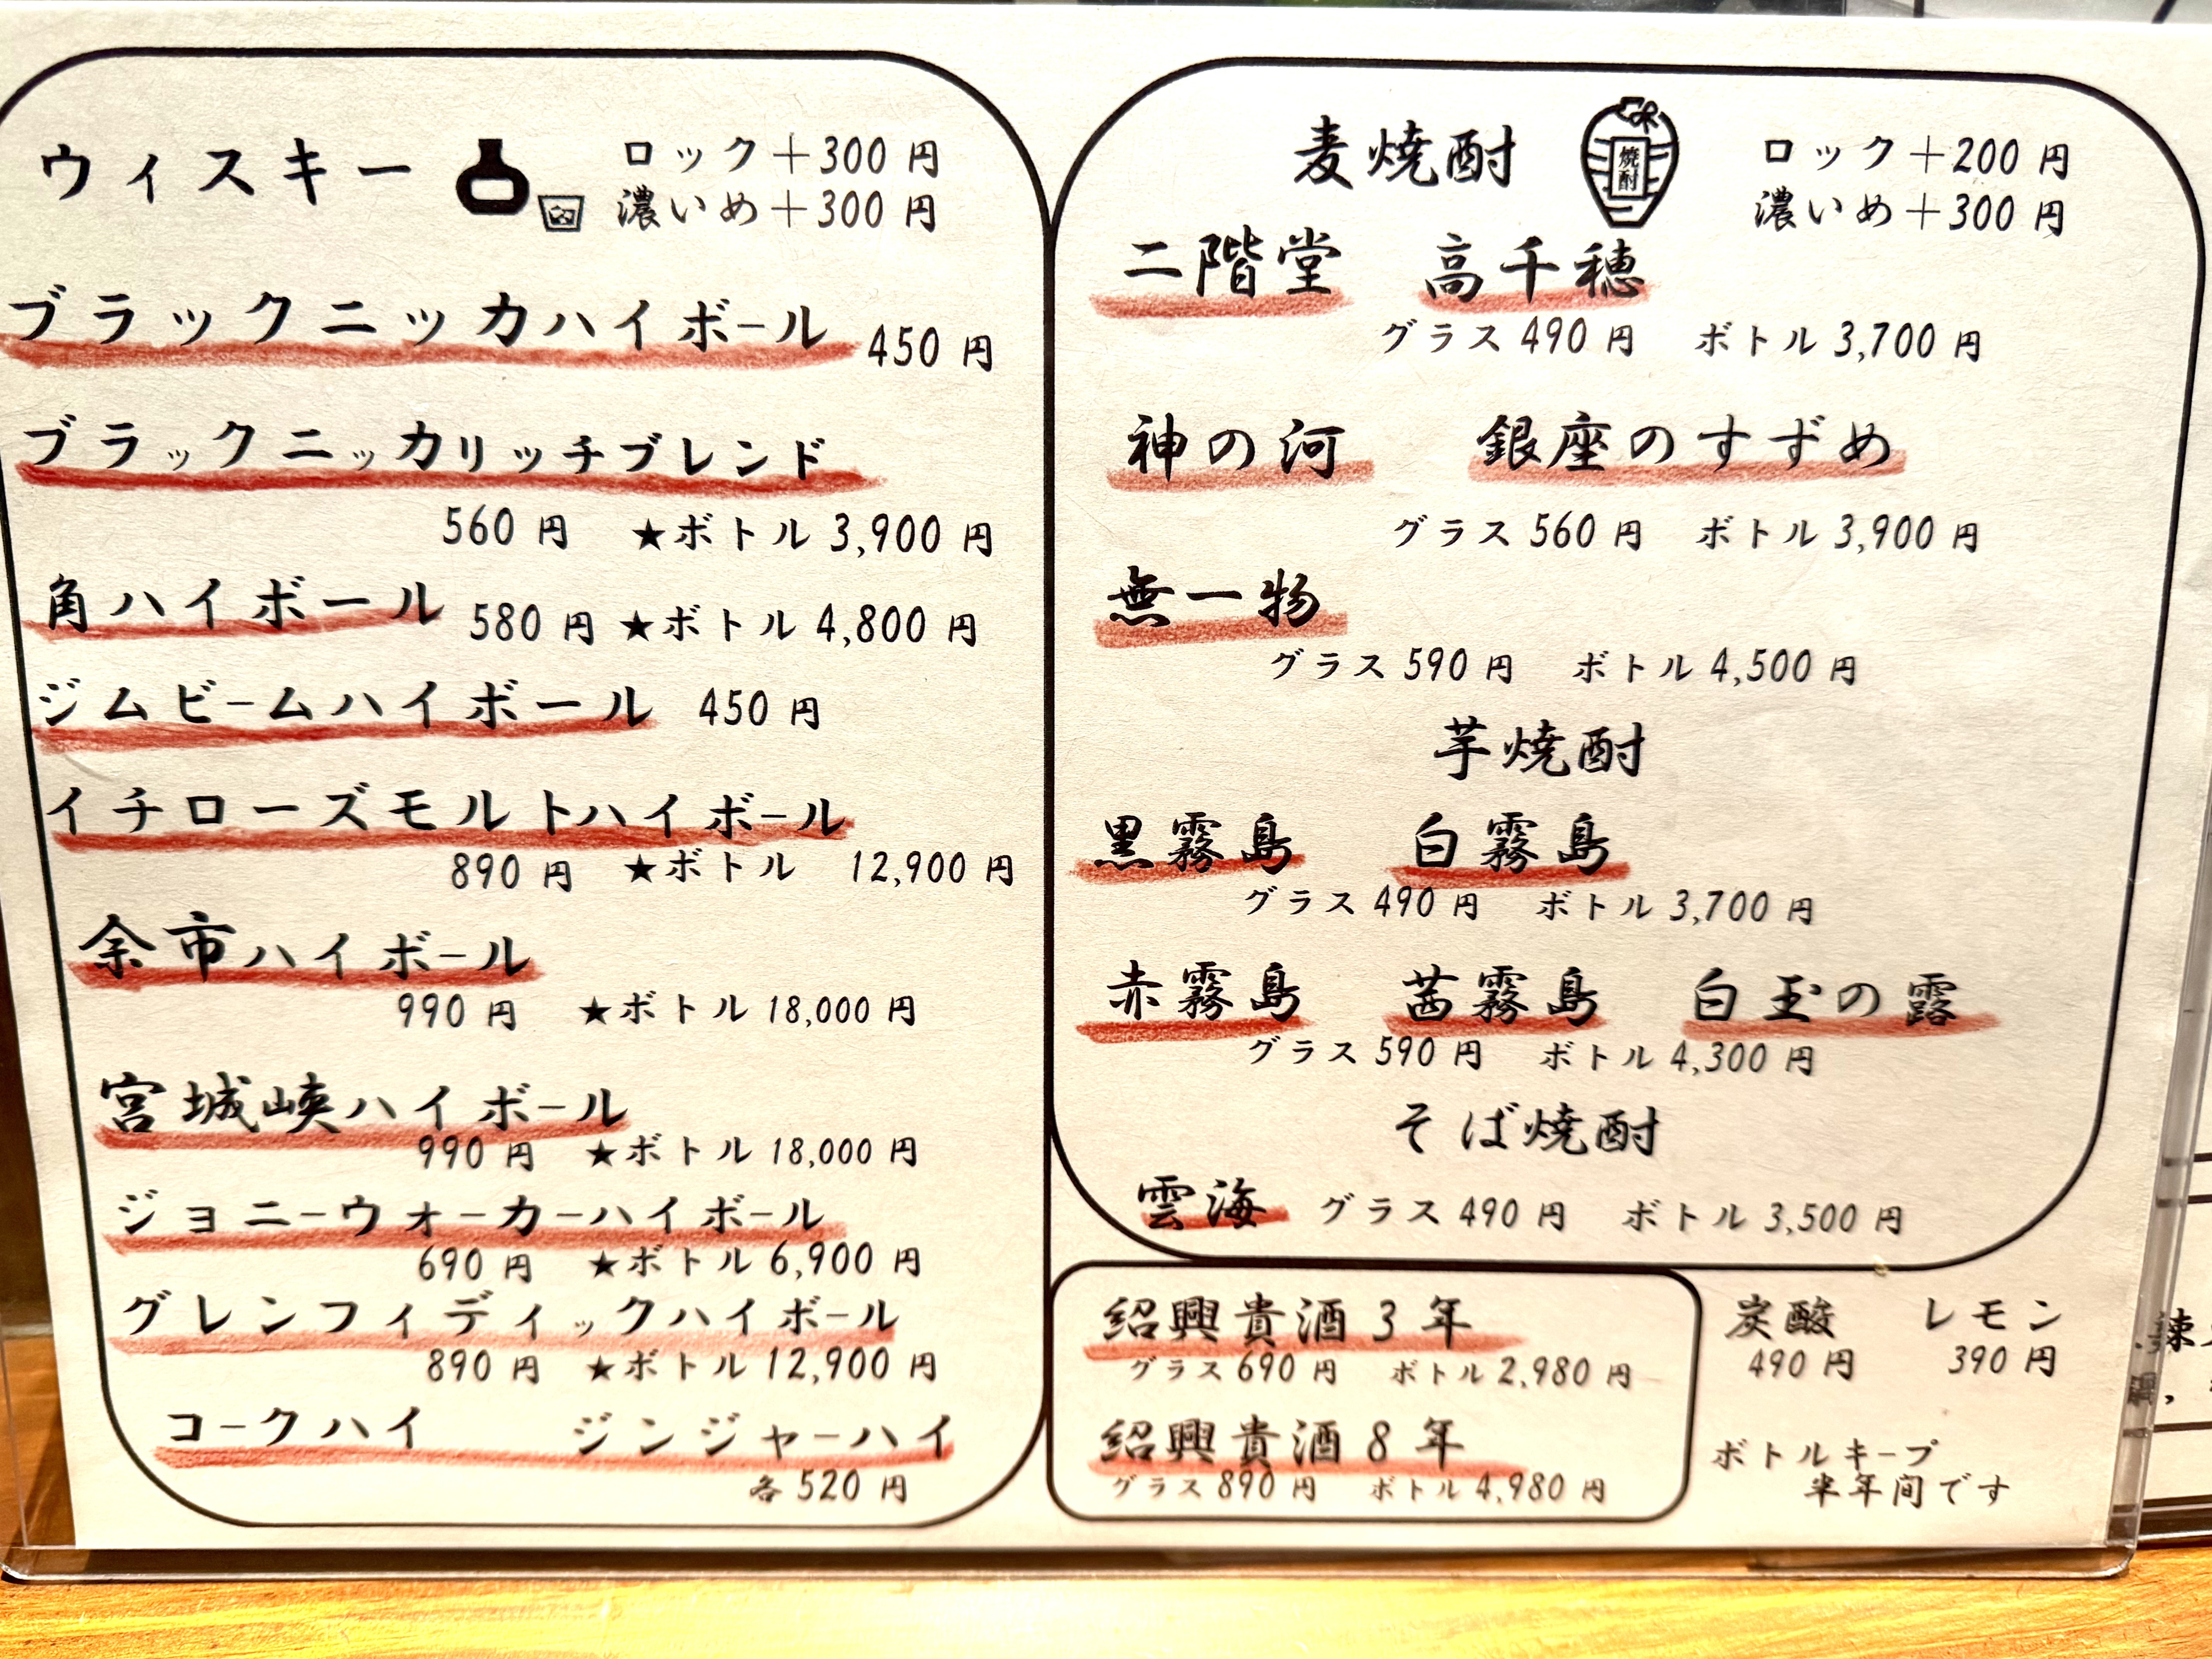 ウィスキー
ロック＋300 円
濃いめ＋300 円
ブラックニッカハイボール 450 円
ブラックニッカリッチブレンド
560 円 ★ボトル 3,900 円
角ハイボール 580 円 ★ボトル 4,800 円
ジムビームハイボール 450 円
イチローズモルトハイボール
890 円 ★ボトル 12,900 円
余市ハイボール
990 円 ★ボトル 18,000 円
宮城峡ハイボール
990 円 ★ボトル 18,000 円
ジョニーウォーカーハイボール
690 円 ★ボトル 6,900 円
グレンフィディックハイボール
890 円 ★ボトル 12,900 円
コークハイ ジンジャーハイ
各 520 円
麦焼酎
焼酎
ロック＋200 円
濃いめ＋300 円
二階堂 高千穂
グラス 490 円 ボトル 3,700 円
神の河 銀座のすずめ
グラス 560 円 ボトル 3,900 円
無一物
グラス 590 円 ボトル 4,500 円
芋焼酎
黒霧島 白霧島
グラス 490 円 ボトル 3,700 円
赤霧島 茜霧島 白玉の露
グラス 590 円 ボトル 4,300 円
そば焼酎
雲海 グラス 490 円 ボトル 3,500 円
紹興貴酒 3 年
グラス 690 円 ボトル 2,980 円
紹興貴酒 8 年
グラス 890 円 ボトル 4,980 円
炭酸 レモン
490 円 390 円
ボトルキープ
半年間です